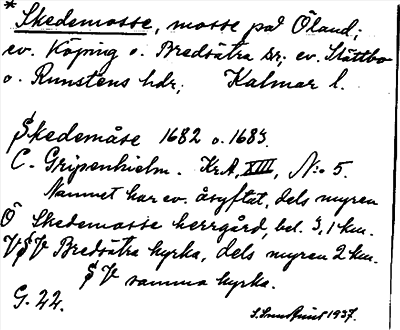 * Skedemosse, mosse på Öland;
ev. Köping o. Bredsätra sr; ev. Slättbo
o. Runstens hdr; Kalmar l.
Skedemåse 1682 o. 1683.
C. Gripenhielm. Kr.A, XIII, N:o 5.
Namnet har ev. åsyftat, dels myren
Ö Skedemosse herrgård, bel. 3,1 km.
VSV Bredsätra kyrka, dels myren 2 km.
SV samma kyrka.
G. 22.
1937.